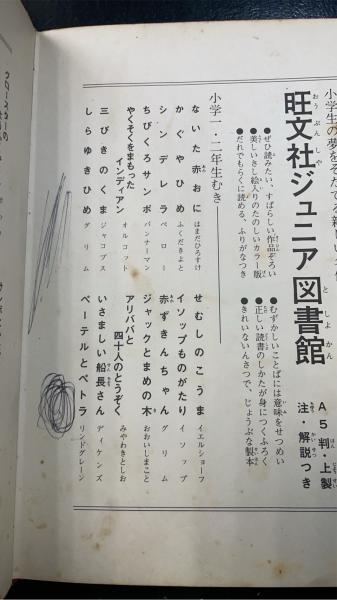 小学生の夢をそだてる新しい
旺文社ジュニア図書館
おうぶんしゃ
としょかん
A5判・上製
注・解説つき
●ぜひ読みたい、すばらしい作品ぞろい
●美しいさし絵入りのたのしいカラー版
●だれでもらくに読める、ふりがなつき
●むずかしいことばには意味をせつめい
●正しい読書のしかたが身につくふろく
●きれいないんさつで、じょうぶな製本
小学一・二年生むき
ないた赤おに はまだひろすけ
かぐやひめ ふくだきよと
シンデレラ ペロー
ちびくろサンボ バンナーマン
やくそくをまもった
インディアン オルコット
三びきのくま ジャコブス
しらゆきひめ グリム
せむしのこうま イエルショーフ
イソップものがたり イソップ
赤ずきんちゃん グリム
ジャックとまめの木 おおいしまこと
アリババと
四十人のとうぞく みやわきとしお
いさましい船長さん ディケンズ
ペーテルとペトラ リンドグレーン